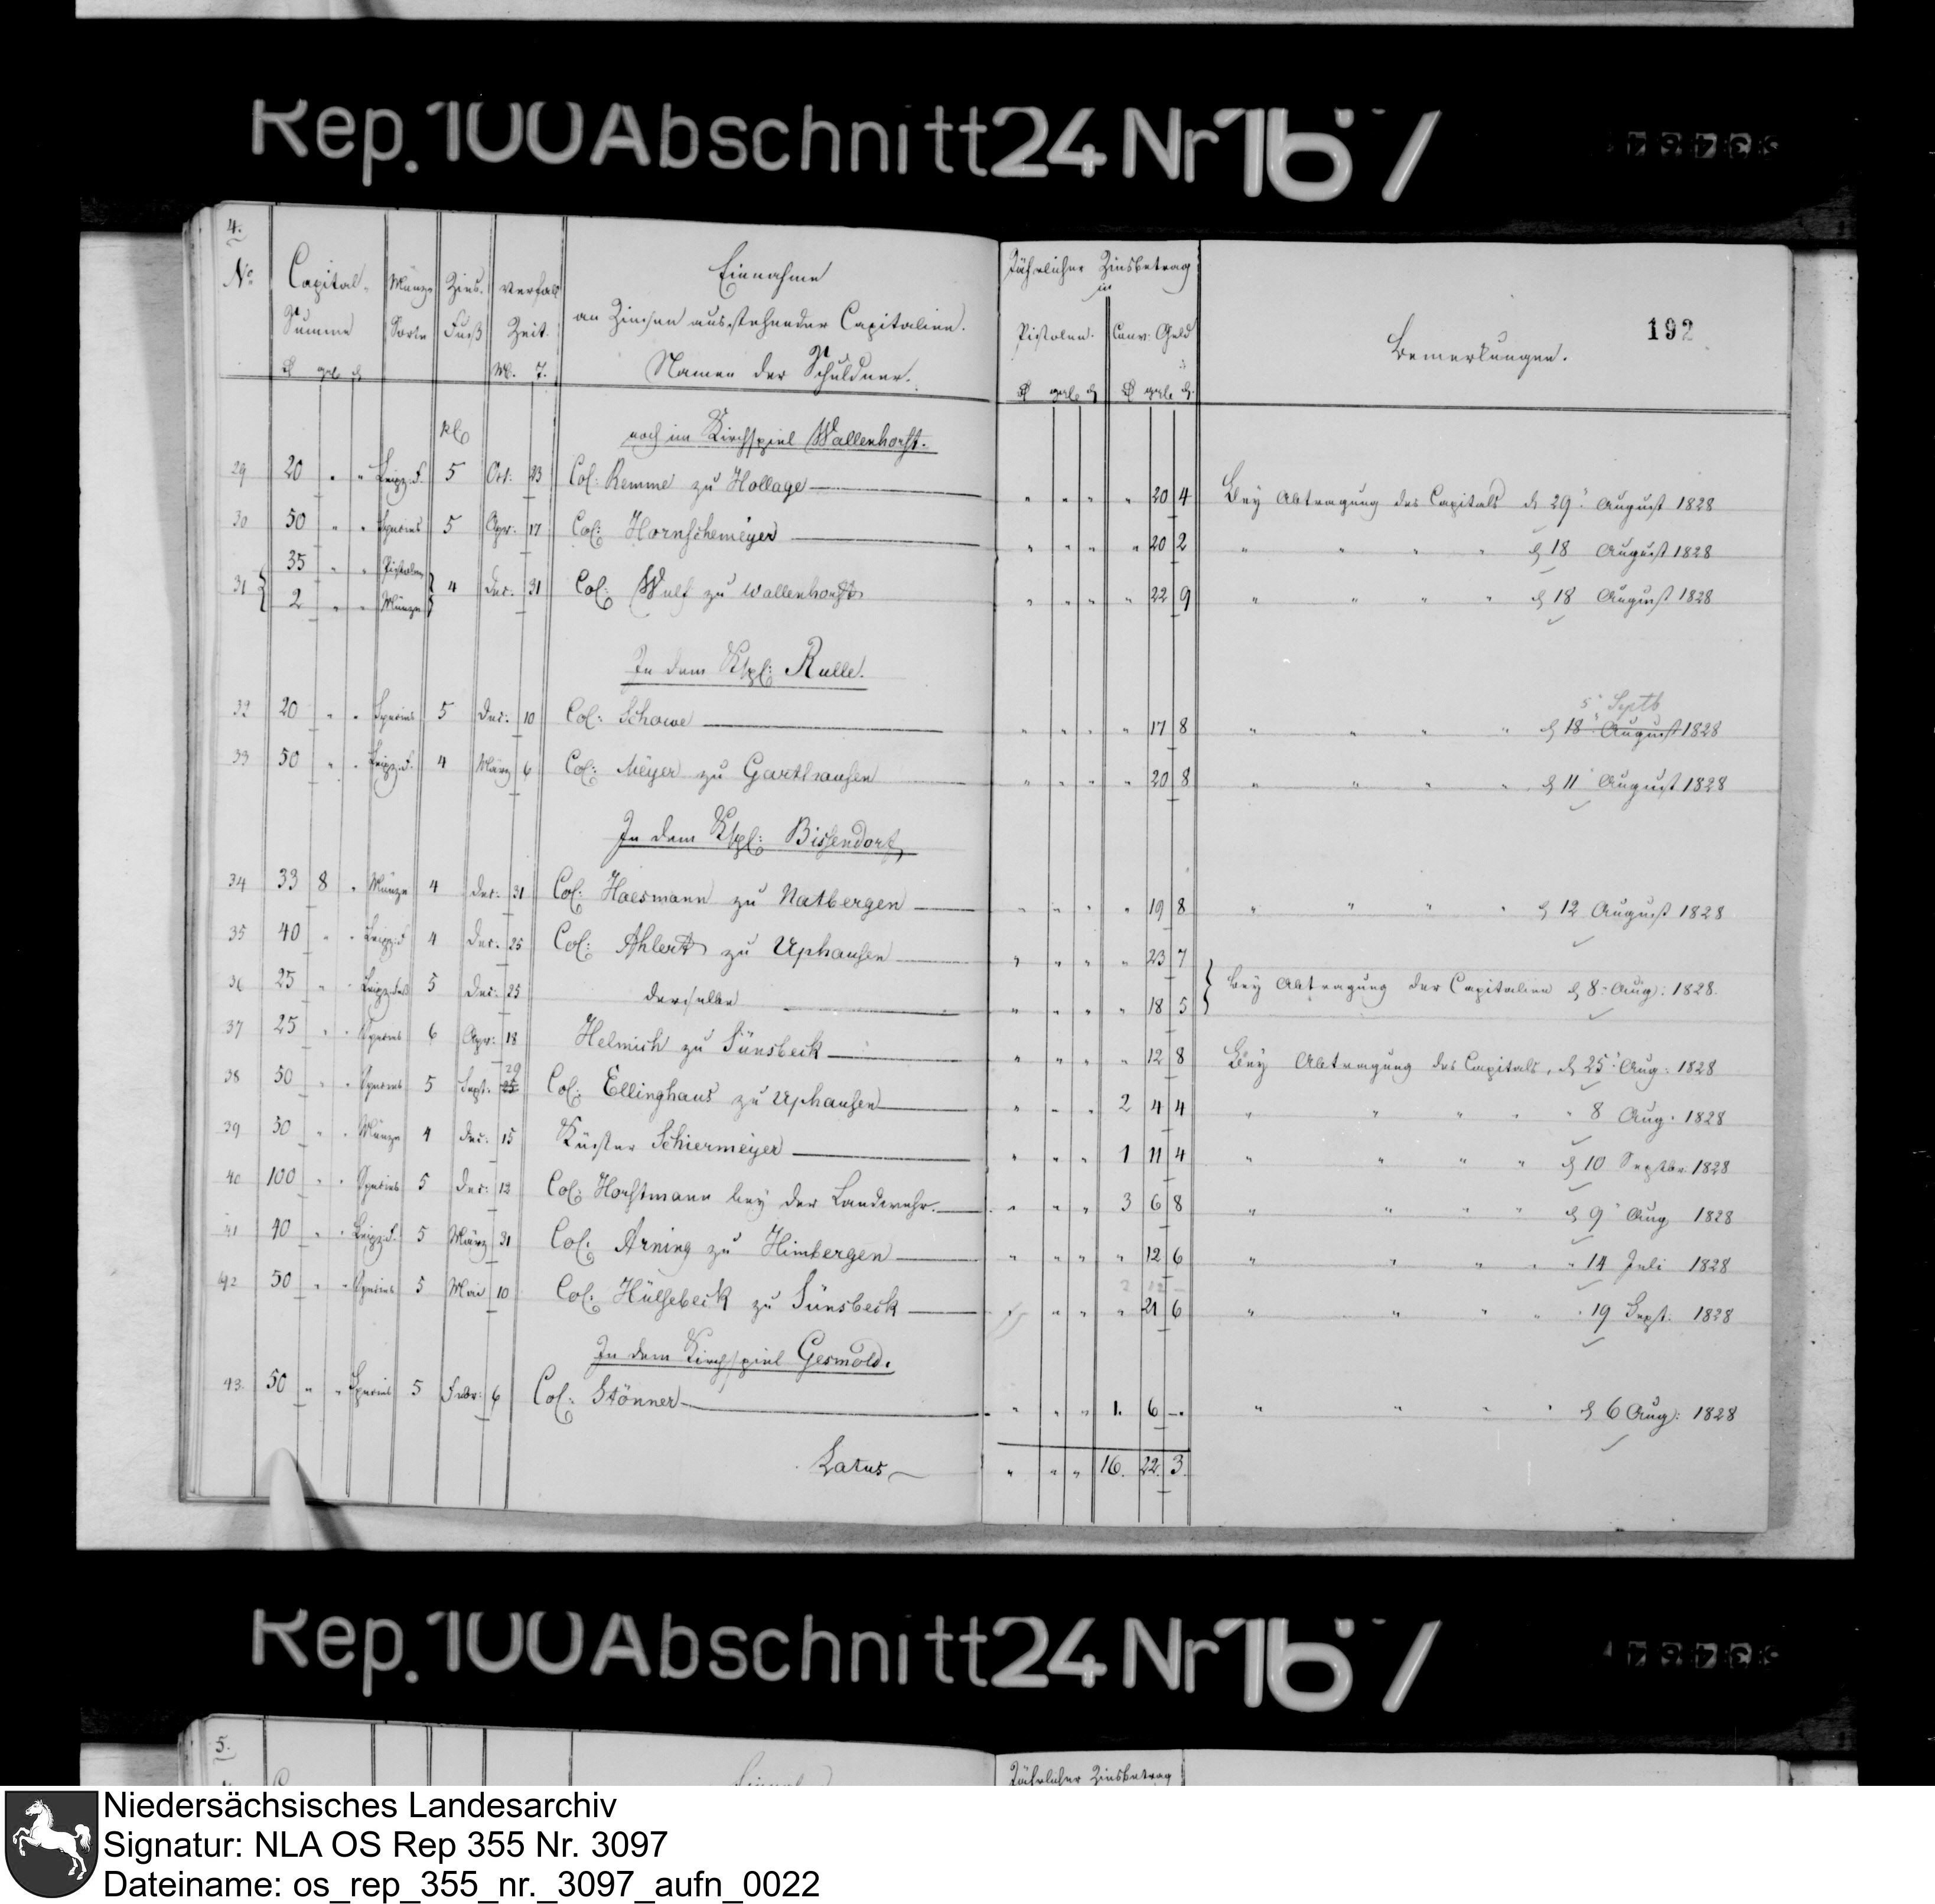 Rep. 100 Abschnitt 24 Nr 167
4.
No Capital- Münz- Zins- Verfall Einnahme Jährlicher Zinsbetrag
Summe Sorte Fuß Zeit. an Zinsen ausstehender Capitalien. in
Pistolen. Conv: Geld Bemerkungen. 192
M. T. Namen der Schuldner.
noch im Kirchspiel Wallenhorst.
29 20 " " Leipz: 5 Oct: 23 Col: Remme zu Hollage " " " " 20 4 Bey Abtragung des Capitals d 29 August 1828
30 50 " " Species 5 Apr: 17 Col: Hornschemeÿer " " " " 20 2 " " " " d 18 August 1828
31 { 35 " " Pistolen } 4 Dec: 31 Col: Wulf zu Wallenhorst " " " " 22 9 " " " " d 18 August 1828
2 " " Münze
In dem Kspl: Rulle.
5 Septb
32 20 " " Species 5 Dec: 10 Col: Schowe " " " " 17 8 " " " " d 18 August 1828
33 50 " " Leipz: 4 März 6 Col: Meÿer zu Garthausen " " " " 20 8 " " " " d 11 August 1828
In dem Kspl: Bissendorf
34 33 8 " Münze 4 Dec: 31 Col: Haesmann zu Natbergen " " " " 19 8 " " " " d 12 August 1828
35 40 " " Leipz: 4 Dec: 25 Col: Ahlert zu Uphausen " " " " 23 7
36 25 " " Leipz: 5 Dec: 25 derselbe " " " " 18 5 } bey Abtragung der Capitalien d 8 Aug: 1828.
37 25 " " Species 6 Apr: 18 Helmich zu Sünsbeck " " " " 12 8 Bey Abtragung des Capitals, d 25 Aug: 1828
38 50 " " Species 5 Sept: 25 29 Col: Ellinghaus zu Uphausen " " " 2 4 4 " " " " " 8 Aug: 1828
39 30 " " Münze 4 Dec: 15 Küster Schiermeÿer " " " 1 11 4 " " " " d 10 Septbr: 1828
40 100 " " Species 5 Dec: 12 Col: Horstmann bey der Landwehr. " " " 3 6 8 " " " " d 9 Aug 1828
41 40 " " Leipz: 5 März 31 Col: Arning zu Himbergen " " " " 12 6 " " " " " 14 Juli 1828
42 50 " " Species 5 Mai 10 Col: Hülsebeck zu Sünsbeck " " " 21 6 " " " " " 19 Sept: 1828
In dem Kirchspiel Gesmold.
43. 50 " " Species 5 Febr: 6 Col: Stönner " " " 1. 6 –. " " " " d 6 Aug: 1828
Latus " " " 16. 22. 3.
Rep. 100 Abschnitt 24 Nr 167
5.
Jährlicher Zinsbetrag
Niedersächsisches Landesarchiv
Signatur: NLA OS Rep 355 Nr. 3097
Dateiname: os_rep_355_nr._3097_aufn_0022